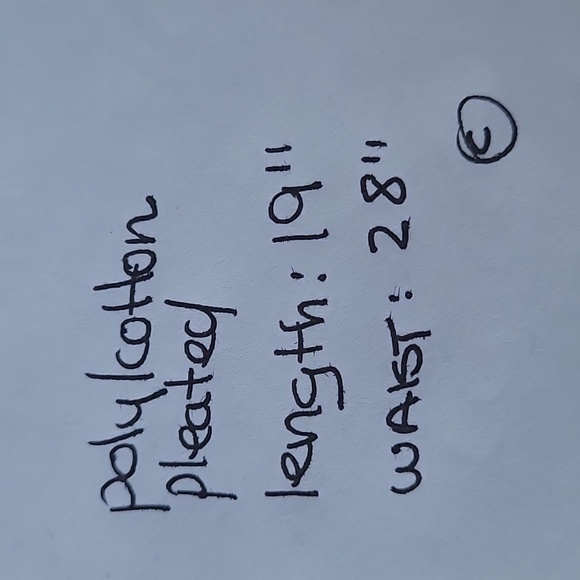 poly/cotton
pleatey
length: 19"
WAIST: 28"